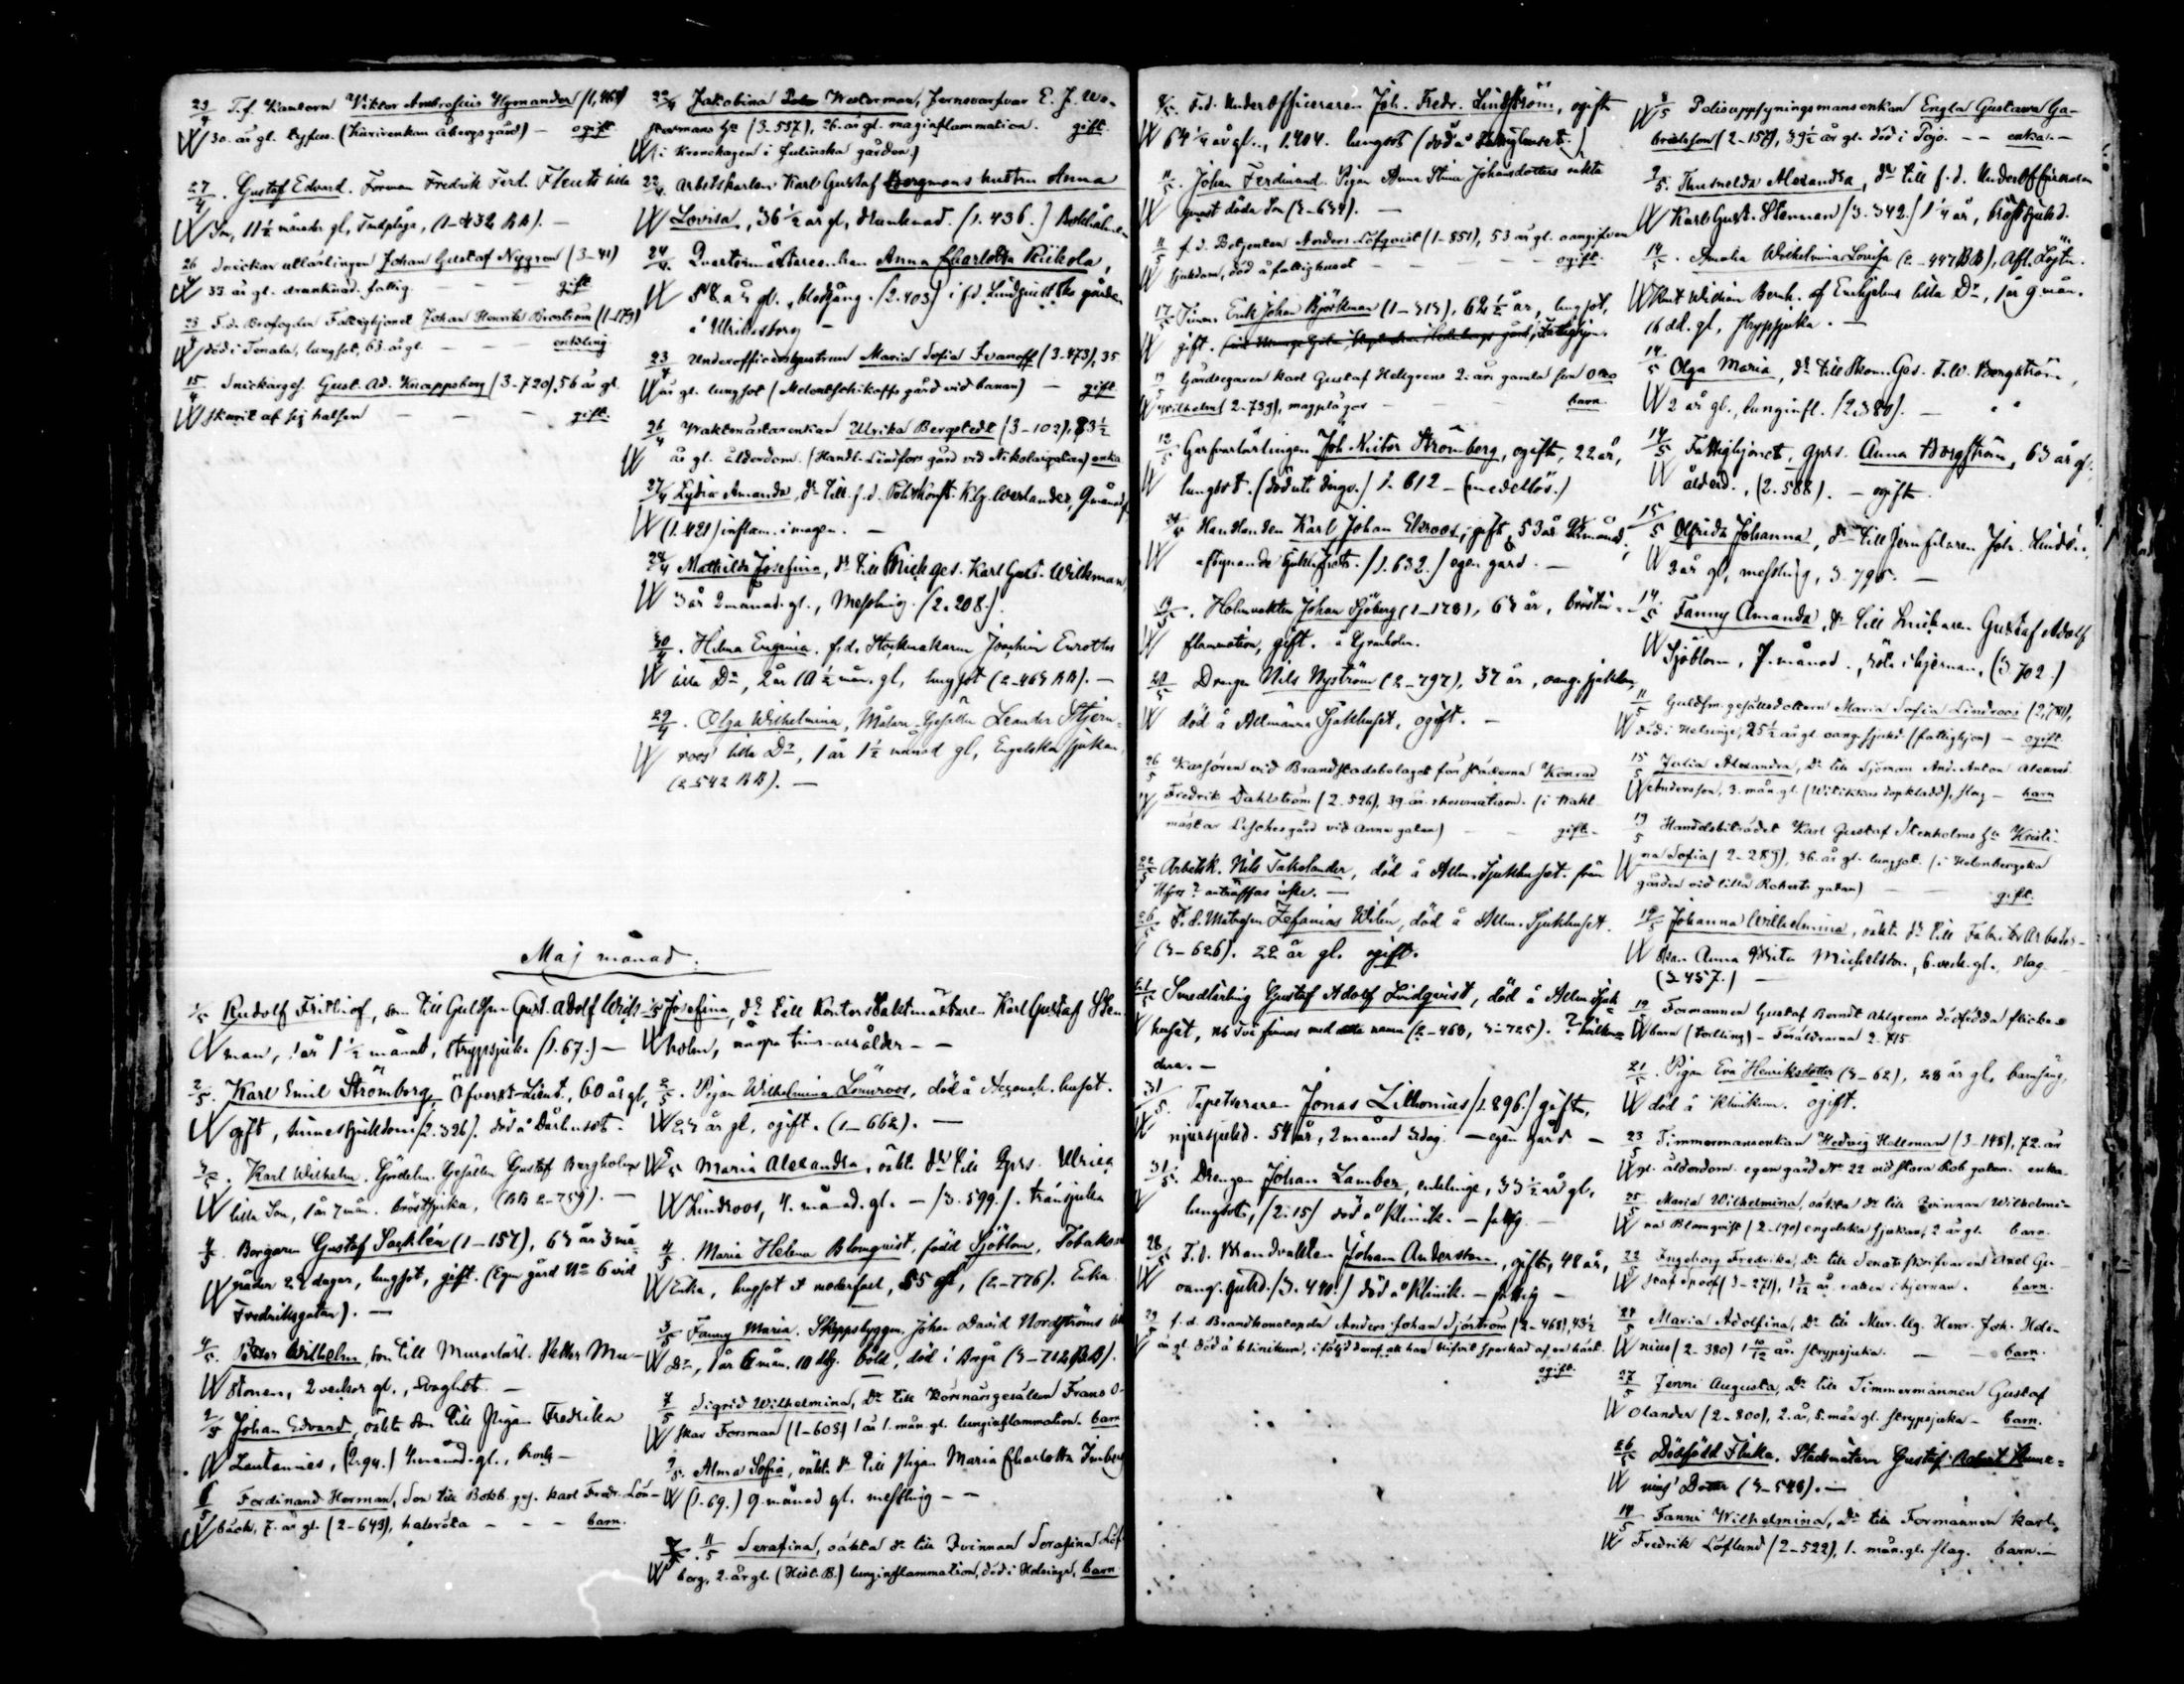 23/4 T.f. Kantorn Viktor Ambrosius Hymander (1,464)
30. år gl. tyfus. (Kärirenkan Åbergs gård) — ogift.
27/4. Gustaf Edvard. Forman Fredrik Ferd. Flents lilla
Son, 11½ månader gl, Tandplåga, (1–432 BB). —
26/4 Snickar ullärlingen Johan Gustaf Nygren (3–41)
33 år gl. drunknad. fattig — — gift
23 F.d. Brofogden Fattighjonet Johan Henrik Broström (1–179)
död i Tenala, lungsot, 63. år gl — — enkling
15/4 Snickargs. Gust. Ad. Knappsberg (3–720), 56 år gl.
skurit af sig halsen — — — gift.
22/4 Jakobina Westerman, Jernsvarfvar E. J. We-
stermans Hu (3–537), 26. år gl. maginflammation. gift.
(i Kronohagen i Julinska gården.)
22/4. Arbetskarlen Karl Gustaf Bergmans hustru Anna
Lovisa, 36½ år gl, drunknad. (1.436.)
24/4. Qvartermästareenkan Anna Charlotta Riikola,
58 år gl., blodgång. (2.403) i f.d. Lindqvistska gården
å Ulrikasborg —
23/4 Underofficershustrun Maria Sofia Ivanoff (3.473), 35
år gl. lungsot (Melontschikoffs gård vid hamn) — gift.
26/4 Waktmästarenkan Ulrika Bergstedt (3–102), 83½
år gl. ålderdom. (Handl. Lindfors gård vid Nikolaigatan) enka
27/4 Lydia Amanda, Dr till f.d. Polis Konst. K.G. Werlander, 9 månad gl.
(1.421) inflam. i magen. —
28/4 Mathilda Josefina, Dr till Snickges. Karl Gust. Wilkman,
3 år 2 månad. gl., Messling. (2.208.)
30/4. Hilma Eugenia. f.d. Stockmakaren Joachim Enrotks
lilla Dr, 2 år 10½ mån. gl, lungsot (2–464 BB). —
29/4. Olga Wilhelmina, Målare Gesällen Leander Stjern-
roos' lilla Dr, 1 år 1½ månad gl, Engelska sjukan,
(2–542 BB). —
Maj månad.
1/5 Rudolf Frithiof, son till Guldsm. Gust. Adolf Wick-
man, 1 år 1½ månad, strypsjuka (1.67.) —
2/5. Karl Emil Strömberg, Öfverst-Lieut., 60 år gl,
gift, sinnessjukdom (2.326). död å Dårhuset.
3/5. Karl Wilhelm. Gördelm. Gesällen Gustaf Bergholms
lilla Son, 1 år 7 mån. bröstsjuka, (BB 2–759). —
4/5. Borgaren Gustaf Sacklén (1–157), 63 år 3 må-
nader 22 dagar, lungsot, gift. (Egen gård No 6 vid
Fredriksgatan). —
4/5. Petter Wilhelm, son till Murarlärl. Petter Mu-
stonen, 2 veckor gl., Svaghet —
2/5 Johan Edvard, oäkta Son till Pigan Fredrika
Lautanies, (2.94.) 4 månad. gl., —
6/5 Ferdinand Herman, Son till Bokb. ges. Karl Fredr. Lön-
bäck, 7. år gl. (2–643), halsröta — — — barn.
1/5 Josefina, Dr till Kontors Vaktmästaren Karl Gustaf Sten-
holm, några timmars ålder — —
2/5. Pigan Wilhelmina Lönnroos, död å Accouch. huset.
23 år gl, ogift. (1–662). —
5/5 Maria Alexandra, oäkta Dr till Qprs. Ulrica
Lindroos, 4. månad. gl. — (3.599.) tränsjuka
4/5. Maria Helena Blomqvist, född Sjöblom, Tobaks
Enka, lungsot, 55 gl, (2–776). Enka.
3/5 Fanny Maria. Skeppsbyggm. Johan David Nordströms lilla
Dr, 1 år 6 mån. 10 dg. böld, död i Borgå (3–722 BB).
7/5 Sigrid Wilhelmina, Dr till Körsnärsgesällen Frans O-
skar Forsman (1–605) 1 år 1. mån. gl. lunginflammation. barn
9/5. Alma Sofia, oäkta Dr till Pigan Maria Charlotta Imberg
(1.69.) 9 månad gl. messling — —
11/5 Serafina, oäkta Dr till Qvinnan Serafina Löf-
berg, 2. år gl. (Hist. B.) lunginflammation, död i Helsinge, barn
8/5. F.d. Underofficeraren Joh. Fredr. Lindström, ogift
64¼ år gl., 1.404. lungsot (död å Fattighuset.)
11/5. Johan Ferdinand. Pigan Anna Stina Johansdotters oäkta
genast döda Son (3–634). —
11/5 f.d. Betjenten Anders Löfqvist (1–851), 53 år gl. oangifven
sjukdom, död å fattighuset — — — — ogift.
17/5 Timm. Erik Johan Björkman (1–315), 62½ år, lungsot,
gift.
19/5 Gårdsegaren Karl Gustaf Hellgrens 2. års gamla son Otto
Wilhelm (2–739), magplågor — — — barn.
12/5 Garfvarlärlingen Joh. Victor Strömberg, ogift, 22 år,
lungsot. 1. 612 — (medellös.)
21/5 Handlanden Karl Johan Elroos, gift, 53 år månad,
aftynande sjuklighet. (1.632.) egen gård. —
19/5. Holmvakten Johan Sjöberg (1–178), 63 år, bröstin-
flammation, gift. å Gräsholm.
20/5 Drengen Nils Nyström (2–797), 37 år, oang. sjukdom,
död å Allmänna Sjukhuset, ogift. —
26/5 Kassören vid Brandstodsbolaget för städerna Konrad
Fredrik Dahlström (2.526), 39 år rheumatism. (i Wakt-
mästar Lesches gård vid Anna gatan) — — gift.
22/5 Arbetsk. Nils Takolander, död å Allm. Sjukhuset. från
Hfors? anträffas icke. —
26/5 F.d. Matrosen Zefanias Wilén, död å Allm. Sjukhuset.
(3–626). 22 år gl. ogift.
21/5 Smedlärling Gustaf Adolf Lindqvist, död å Allm Sjuk-
huset, NB två finnas med detta namn (2–468, 3–725). ? hvilken-
dera. —
31/5. Tapetseraren Jonas Lithonius (1.896.) gift,
njursjukd. 54 år, 2 månad 3 dag. — egen gård —
31/5. Drengen Johan Lamber, enkling, 33½ år gl,
lungsot, (2.15) död å Klinik. — fattig —
28/5 F.d. Brandvakten Johan Anderston, gift, 48 år,
oang. sjukd. (3.440.) död å Klinik. — fattig —
29/5 f.d. Brandkonstapeln Anders Johan Sjöström (2–468), 43½
år gl. död å klinikum, i följd deraf, att han blifvit sparkad af en häst.
ogift.
8/5 Polisuppsyningsmansenkan Engla Gustava Ga-
brielsson (2–157), 39½ år gl. död i Pojo. — — enka. —
9/5. Thusnelda Alexandra, Dr till f.d. Underofficeraren
Karl Gust. Stenman (3.342.) 1¼ år, bröstsjukd.
14/5. Amalia Wilhelmina Lovisa (2–447 BB), Afl. Löjtn.
Knut William Bernh. af Enehjelms lilla Dr, 1 år 9 mån.
16 dd. gl, strypsjuka. —
14/5 Olga Maria, Dr till Skom. Ges. F.W. Bergström,
2 år gl., lunginfl. (2.380). —
14/5 Fattighjonet, qprs. Anna Borgström, 63 år gl,
ålderd., (2.588). — ogift
15/5 Alfrida Johanna, Dr till Jernfilaren Joh. Lindén,
3 år gl, messling, 3.795. —
14/5. Fanny Amanda, Dr till Snickaren Gustaf Adolf
Sjöblom, 7 månad., röta i hjernan, (3.702.)
11/5 Guldsm. gesällsdottern Maria Sofia Lindroos (2,781),
död i Helsinge, 25½ år gl. oang. sjukd (fattighjon) — ogift
15/5 Julia Alexandra, Dr till Sjöman And. Anton Alexand.
Andersson, 3. mån. gl. (Witikkas dopkladd), slag — barn
19/5 Handelsbiträdet Karl Gustaf Stenholms Hu Kristi-
na Sofia (2–289), 36. år gl. lungsot. (i Holmbergska
gården vid lilla Roberts gatan) — — gift.
19/5 Johanna Wilhelmina, oäkta Dr till Fabriks Arbeter-
skan Anna Brita Michelsdr., 6. veck. gl., slag.
(3 457.) —
19/5 Formannen Gustaf Berndt Ahlgrens dödfödda flicke-
barn (tvilling) – Föräldrarna 2–715
21/5. Pigan Eva Henriksdotter (3–62), 28 år gl, barnsäng,
död å Klinikum. ogift.
23/5 Timmermansenkan Hedvig Hellman (3–148), 72. år
gl. ålderdom. egen gård No 22 vid stora Rob. gatan. enka.
25/5 Maria Wilhelmina, oäkta Dr till Qvinnan Wilhelmi-
na Blomqvist (2–190) engelska sjukan, 2 år gl. barn.
22/5 Ingeborg Fredrika, Dr till Senatsskrifvaren Axel Gu-
staf Spoof (3–271), 1 år, vatten i hjernan. barn.
27/5 Maria Adolfina, Dr till Mur. Ug. Henr. Joh. Hele-
nius (2–380) 1 10/12 år. strypsjuka. — — barn.
27/5 Jenni Augusta, Dr till Timmermannen Gustaf
Olander (2–800), 2. år, 5. mån gl. strypsjuka — barn.
26/5 Dödfödd Flicka. Stadsmätarn Gustaf Robert Hume-
nius' Dotter (3–528). —
18/5 Fanni Wilhelmina, Dr till Formannen Karl
Fredrik Löflund (2–522), 1. mån. gl. slag. barn. —